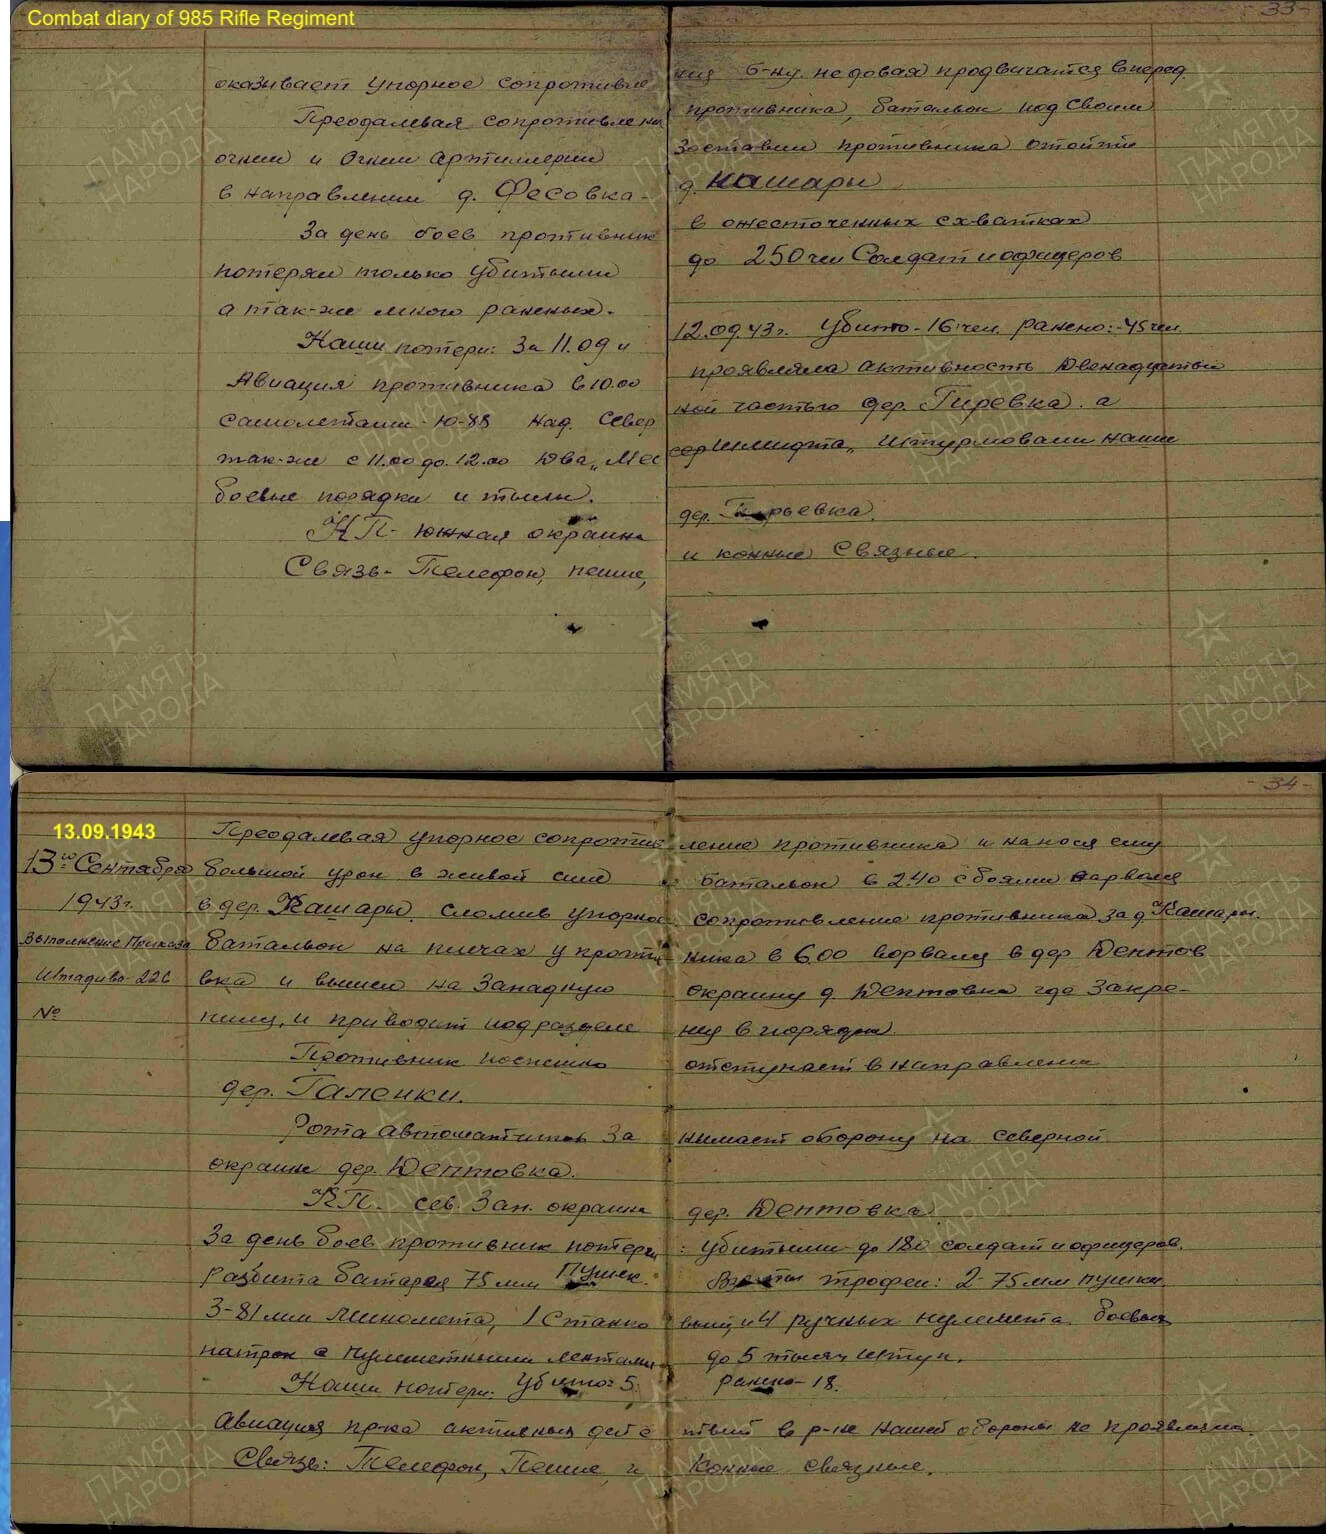 Combat diary of 985 Rifle Regiment
- 33 -
оказывает упорное сопротивле ния б-ну. не довая продвигатся вперед
Преодалевая сопротивлени противника, батальон под своим
огнем и огнем артиллерии заставил противника отойти
в направлении д. Фесовка - д. Кашары
За день боев противник в ожесточенных схватках
потерял только убитыми до 250 чел Солдат и офицеров
а так-же много раненых.
Наши потери: За 11.09 и 12.09.43 г. Убито - 16 чел. ранено: - 45 чел
Авиация противника в 10.00 проявляла активность Двенадцатью
самолетами Ю-88 над Север ной частью дер. Гиревка. а
так-же с 11.00 до 12.00 Два „Мес сершмидта„ штурмовали наши
боевые порядки и тылы.
НП - южная окраина дер. рьевка.
Связь - Телефон, пешие, и конные Связные.
- 34 -
13.09.1943
13го Сентября
1943 г.
Выполнение Приказа
Штадива 226
№
Преодалевая упорное сопротив ление противника и нанося ему
большой урон в живой силе батальон в 2.40 с боями ворвался
в дер. Кашары. Сломив упорное сопротивление противника за д. Кашары.
батальон на плечах у против ника в 6.00 ворвался в дер Дептов
вка и вышел на Западную окраину д. Дептовка где закре-
пился, и приводит подразделе ния в порядок.
Противник поспешно отступает в направлении
дер. Галенки.
Рота автоматчиков за нимает оборону на северной
окраине дер. Дептовка.
КП. сев. Зап. окраина дер. Дептовка
За день боев противник потерял : Убитыми до 180 солдат и офицеров.
Разбита батарея 75 мм Пушек. Взяты трофеи: 2- 75 мм пушки
3-81 мм Миномета, 1 Станко вый, и 4 ручных пулемета. боевых
патрон с пулеметными лентами до 5 тысяч штук.
Наши потери. Убито: 5. ранено - 18.
Авиация пр-ка активных дейс твий в р-не нашей обороны не проявляла.
Связь: Телефон, Пешие, и Конные связные.
ПАМЯТЬ
НАРОДА